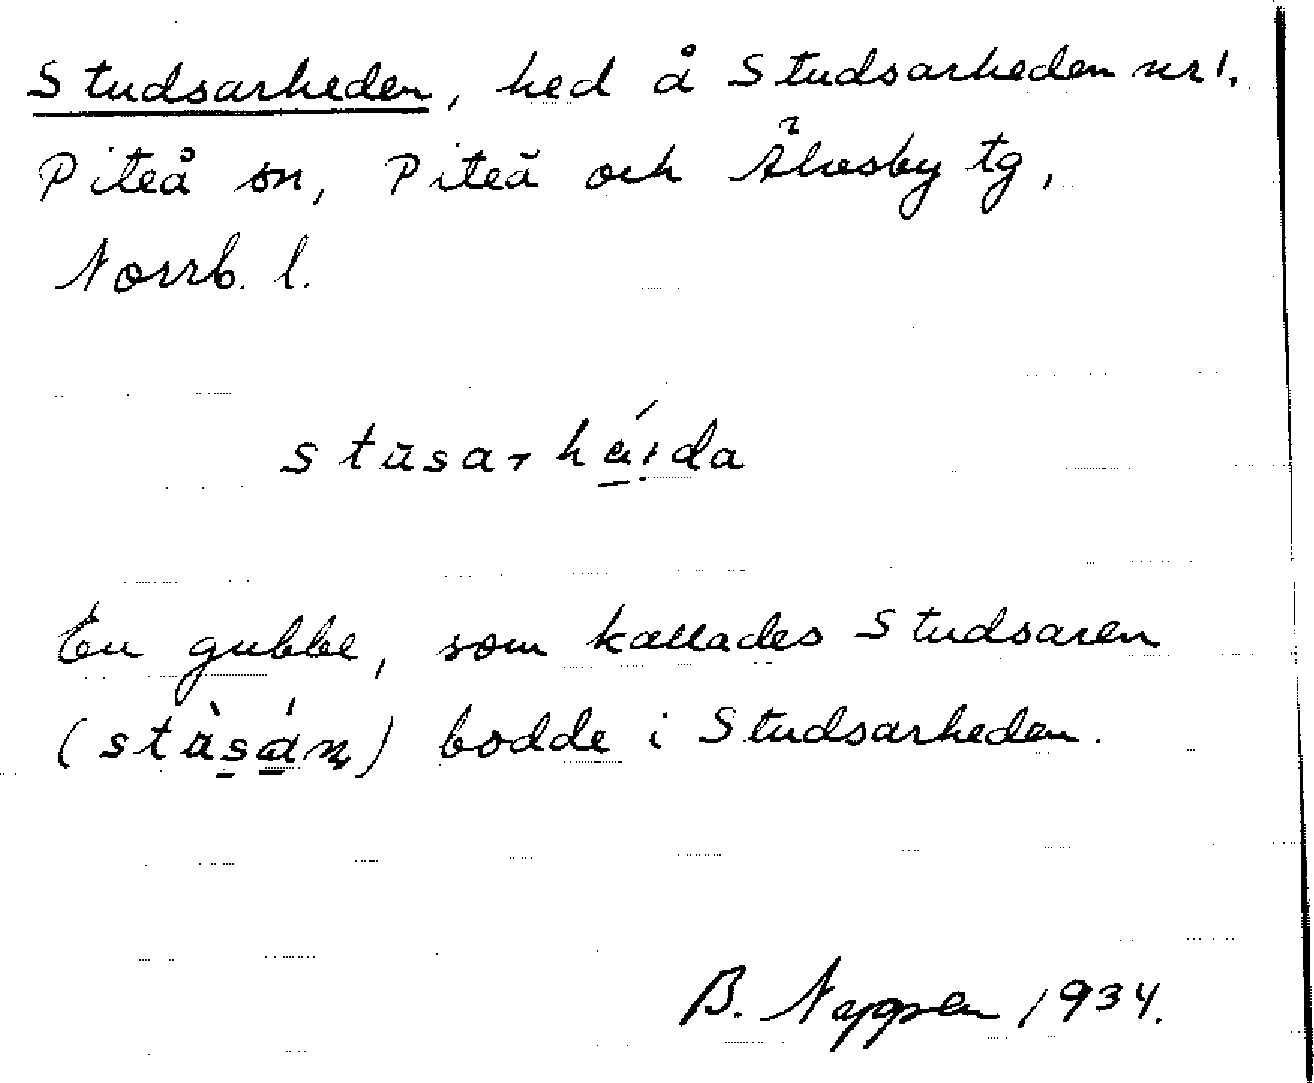 Studsarheden, hed å Studsarheden nr 1.
Piteå sn, Piteå och Älvsby tg,
Norrb. l.
stusarháida
En gubbe, som kallades Studsaren
(stùsán) bodde i Studsarheden.
B. 1934.